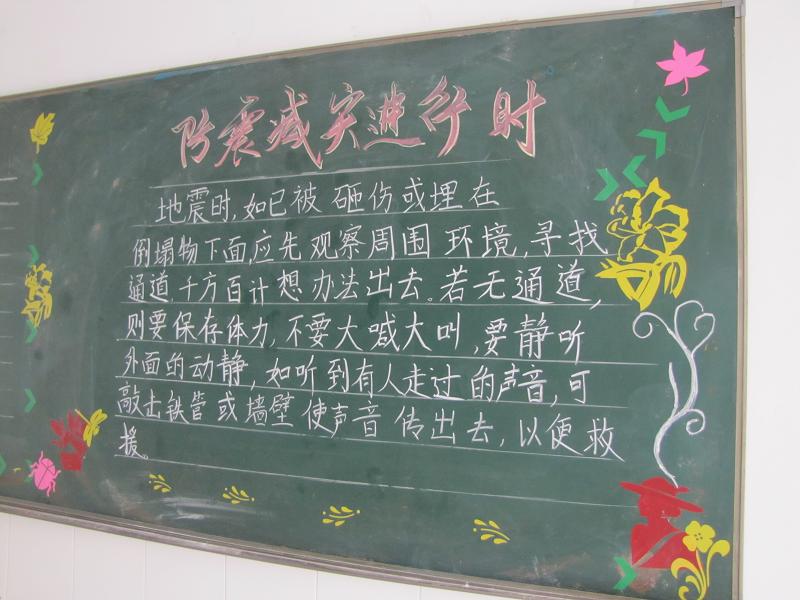 防震减灾进行时
地震时,如已被砸伤或埋在
倒塌物下面,应先观察周围环境,寻找
通道,千方百计想办法出去。若无通道,
则要保存体力,不要大喊大叫,要静听
外面的动静,如听到有人走过的声音,可
敲击铁管或墙壁使声音传出去,以便救
援。